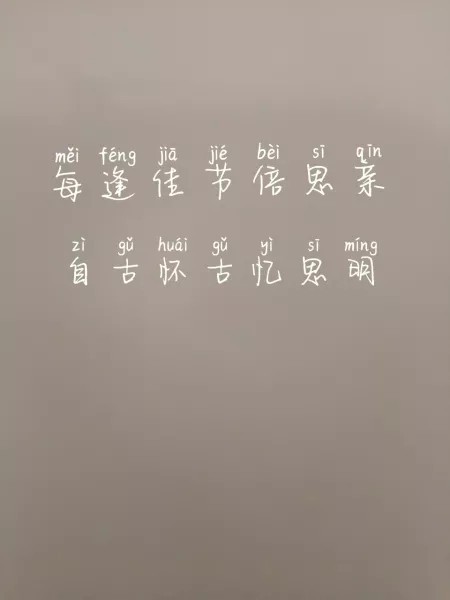 měi féng jiā jié bèi sī qīn
每逢佳节倍思亲
zì gǔ huái gǔ yì sī míng
自古怀古忆思明